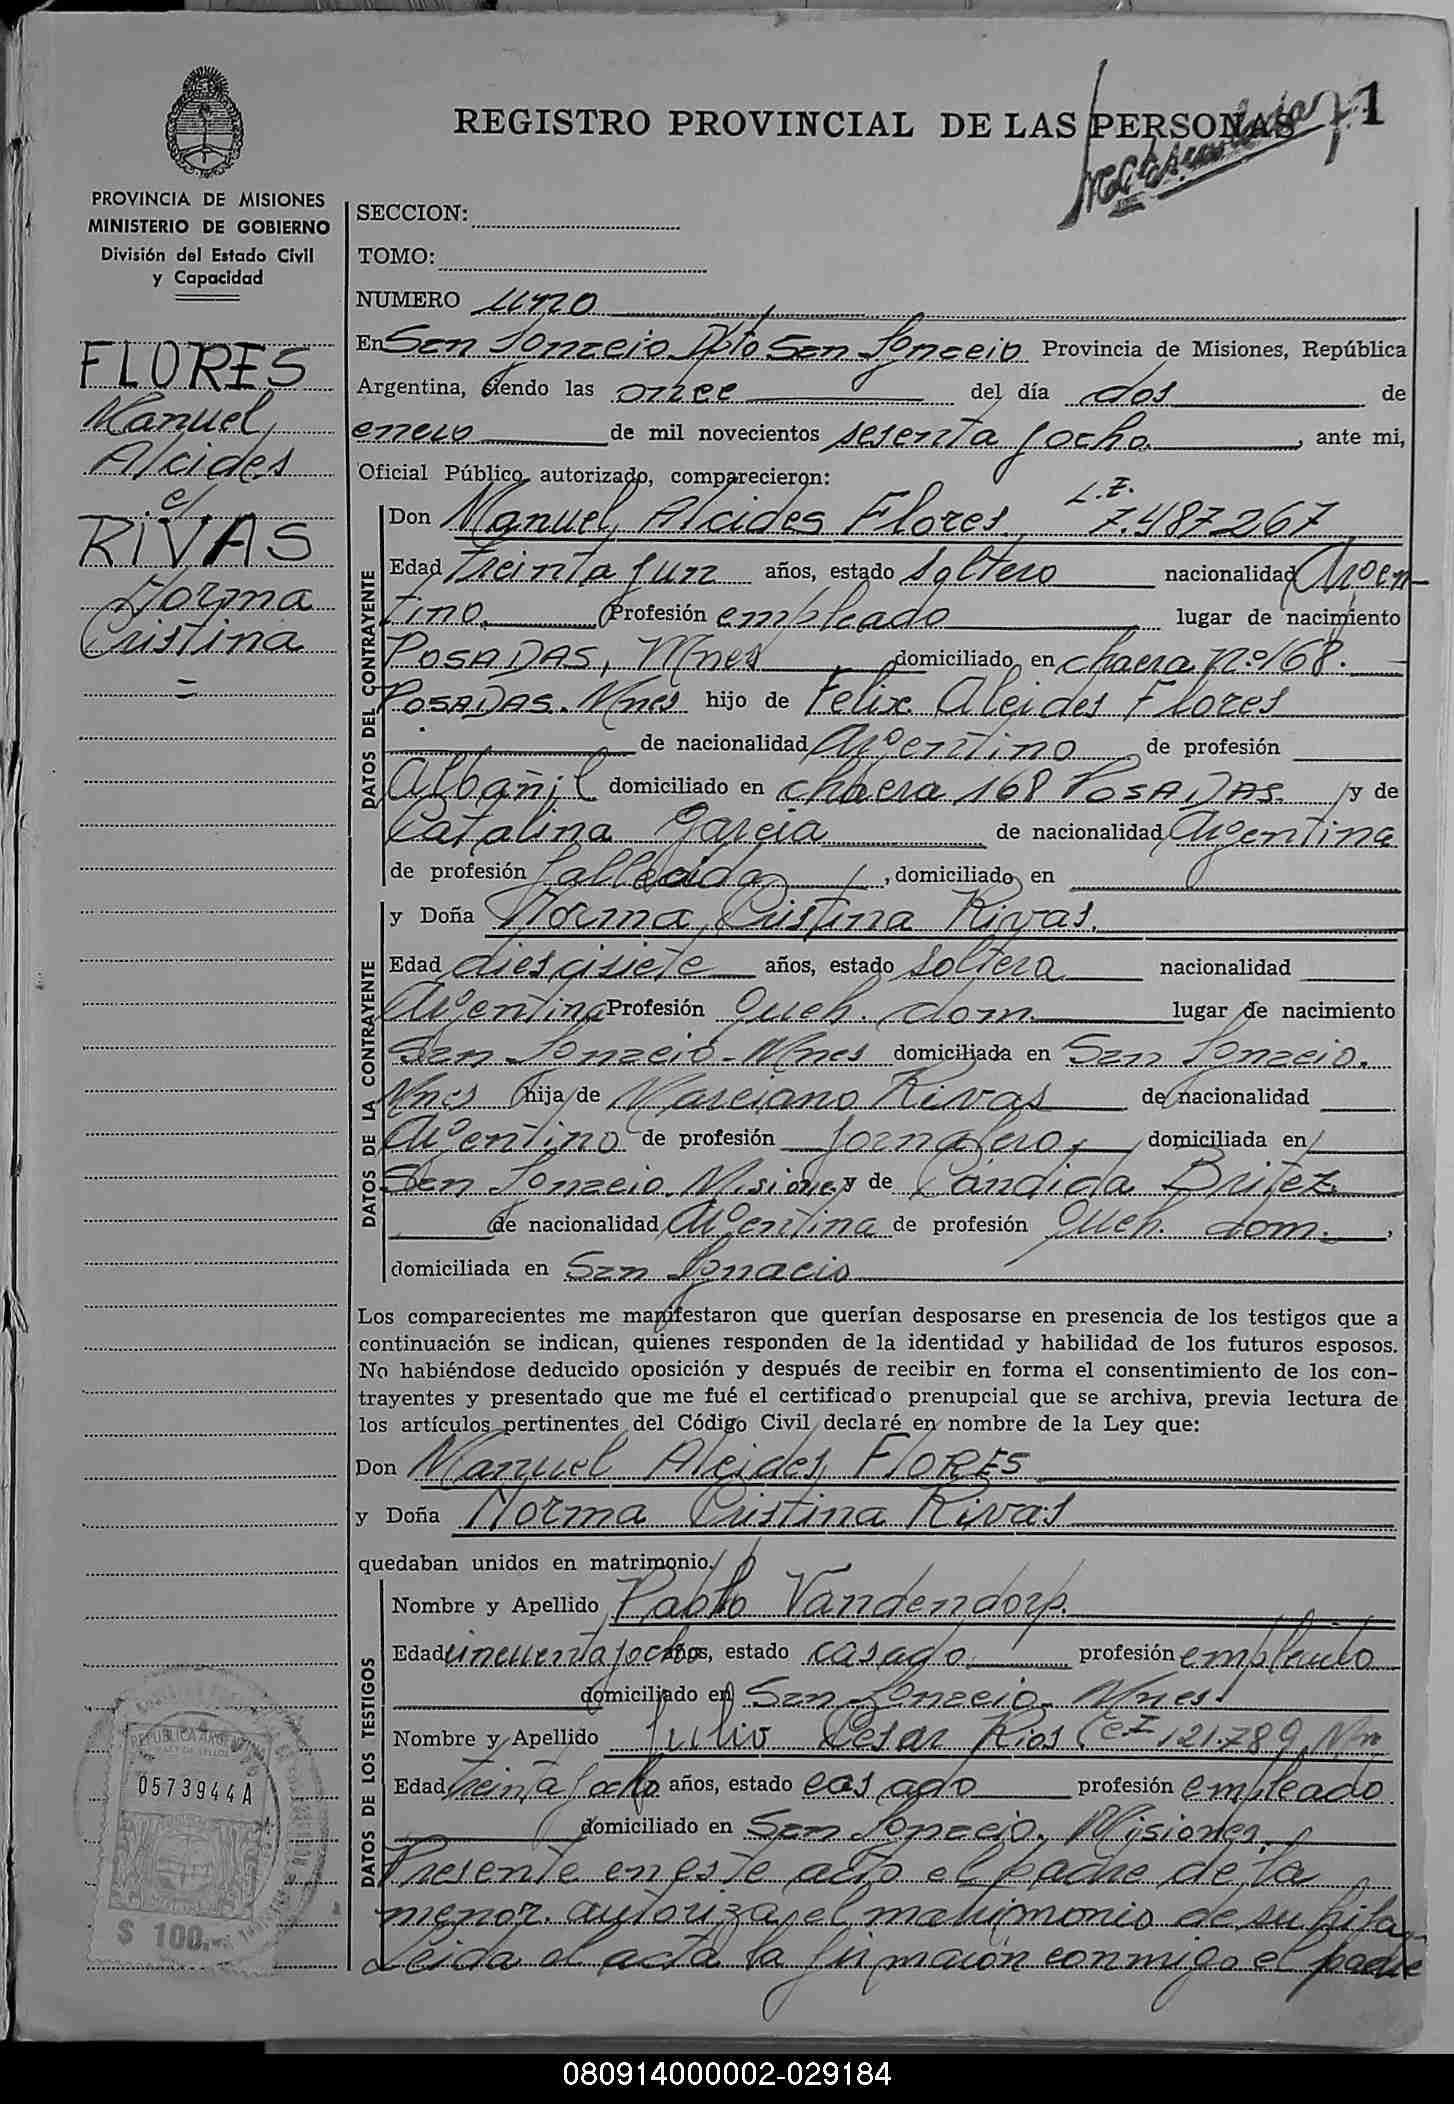 REGISTRO PROVINCIAL DE LAS PERSONAS
1
PROVINCIA DE MISIONES
MINISTERIO DE GOBIERNO
División del Estado Civil
y Capacidad
FLORES
Manuel
Alcides
c/
RIVAS
Norma
Cristina
=
REPUBLICA ARGENTINA
0573944A
$ 100.-
SECCION:
TOMO:
NUMERO uno
En San Ignacio Dpto San Ignacio Provincia de Misiones, República
Argentina, siendo las once del día dos de
enero de mil novecientos sesenta y ocho, ante mi,
Oficial Público autorizado, comparecieron:
DATOS DEL CONTRAYENTE
Don Manuel Alcides Flores 7.487267
Edad treinta y un años, estado soltero nacionalidad Argen-
tino. Profesión empleado lugar de nacimiento
POSADAS, Mnes domiciliado en chacra nº 168.
POSADAS. Mnes hijo de Felix Alcides Flores
de nacionalidad Argentino de profesión
Albañil domiciliado en chacra 168 POSADAS. y de
Catalina Garcia de nacionalidad Argentina
de profesión fallecida, domiciliado en
DATOS DE LA CONTRAYENTE
y Doña Norma Cristina Rivas.
Edad diescisiete años, estado soltera nacionalidad
Argentina Profesión queh. dom. lugar de nacimiento
San Ignacio - Mnes domiciliada en San Ignacio.
Mnes hija de Marciano Rivas de nacionalidad
Argentino de profesión jornalero, domiciliada en
San Ignacio. Misiones y de Cándida Britez
de nacionalidad Argentina de profesión queh. dom.,
domiciliada en San Ignacio
Los comparecientes me manifestaron que querían desposarse en presencia de los testigos que a
continuación se indican, quienes responden de la identidad y habilidad de los futuros esposos.
No habiéndose deducido oposición y después de recibir en forma el consentimiento de los con-
trayentes y presentado que me fué el certificado prenupcial que se archiva, previa lectura de
los artículos pertinentes del Código Civil declaré en nombre de la Ley que:
Don Manuel Alcides FLORES
y Doña Norma Cristina Rivas
quedaban unidos en matrimonio.
DATOS DE LOS TESTIGOS
Nombre y Apellido Pablo Vandendorp.
Edad cincuenta y ocho años, estado casado profesión empleado
domiciliado en San Ignacio - Mnes.
Nombre y Apellido Julio Cesar Rios 121.789
Edad treinta y ocho años, estado casado profesión empleado
domiciliado en San Ignacio. Misiones.
Presente en este acto el padre de la
menor. autoriza el matrimonio de su hija
Leida el acta la firmaron conmigo el padre
080914000002-029184